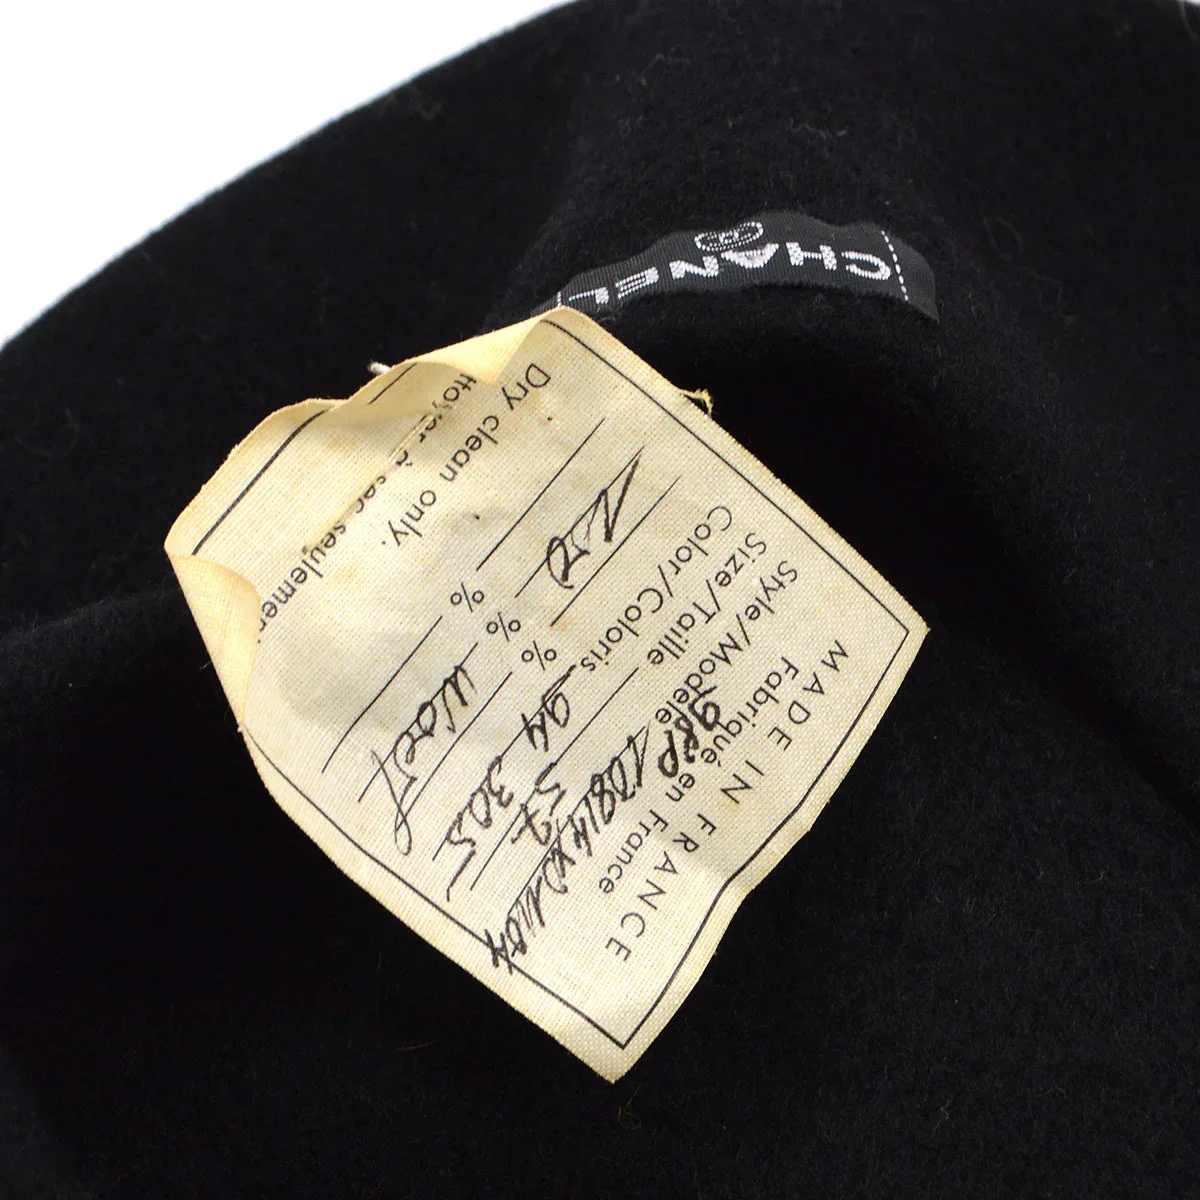 CHANEL
MADE IN FRANCE
Fabriqué en France
Style/Modèle 98P 10814X01404
Size/Taille 57
Color/Coloris 94305
100 % Wool
%
%
Dry clean only.
ttoyer à sec seulemen